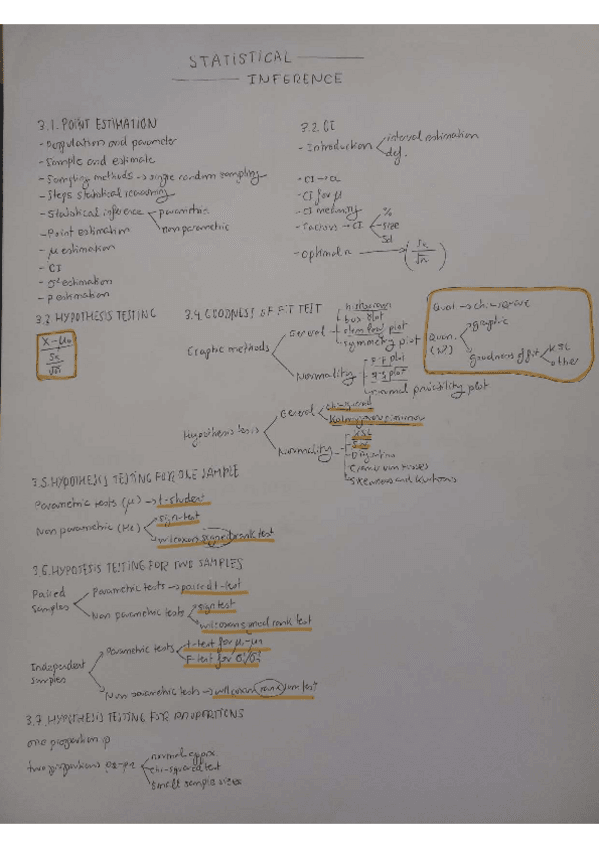 STATISTICAL
INFERENCE
3.1. POINT ESTIMATION
- Population and parameter
- Sample and estimate
- Sampling methods → single random sampling
- Steps statistical reasoning
- Statistical inference
parametric
non parametric
- Point estimation
- μ estimation
- CI
- σ² estimation
- p estimation
3.2. CI
- Introduction
interval estimation
def.
- CI → α
- CI for μ
- CI meaning
- Factors → CI
%
size
Sd
- optimal n → (Sx/√n)
3.3. HYPOTHESIS TESTING
x - μ0
Sx
√n
3.4. GOODNESS OF FIT TEST
Graphic methods
General
histogram
box plot
stem leaf plot
symmetry plot
Normality
p-p plot
q-q plot
normal probability plot
Qual → chi-square
Quan.
(N)
graphic
goodness of fit
KSL
other
Hypothesis tests
General
chi-squared
Kolmogorov smirnov
Normality
KSL
D'agostino
Cramer von misses
Skewness and kurtosis
3.5. HYPOTHESIS TESTING FOR ONE SAMPLE
Parametric tests (μ) → t-student
Non parametric (Me)
sign test
wilcoxon signed rank test
3.6. HYPOTESIS TESTING FOR TWO SAMPLES
Paired samples
Parametric tests → paired t-test
Non parametric tests
sign test
wilcoxon signed rank test
Independent samples
Parametric tests
t-test for μ1-μ2
F test for σ²/σ²
Non parametric tests → wilcoxon rank sum test
3.7. HYPOTHESIS TESTING FOR PROPORTIONS
one proportion p
two proportions p1-p2
normal approx
chi-squared test
small sample sizes